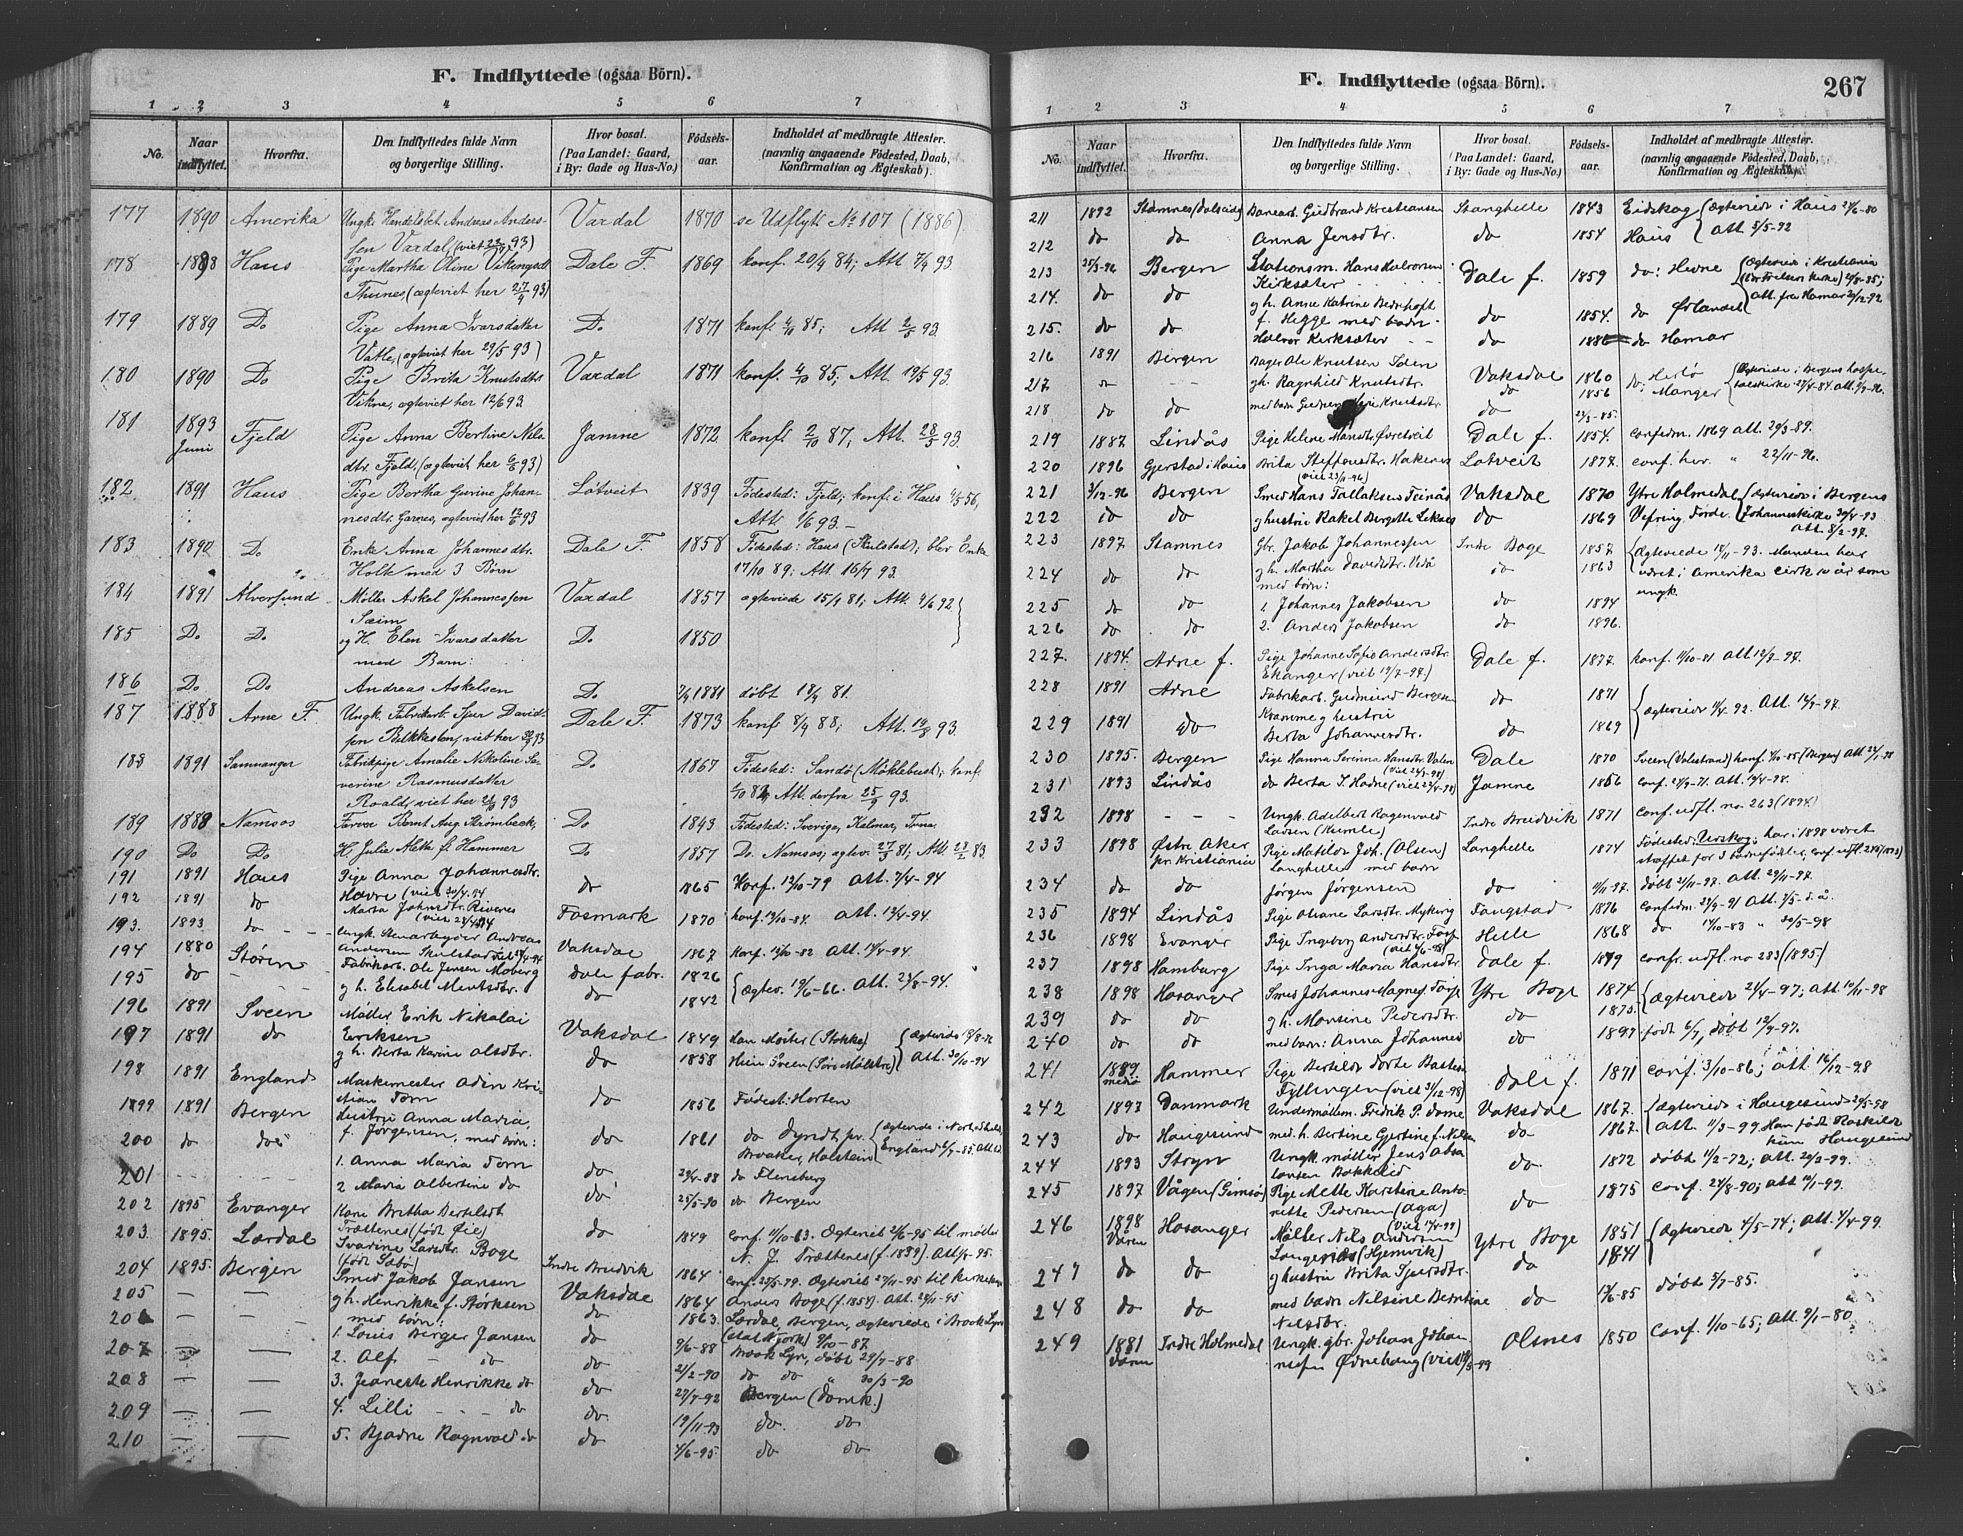 F. Indflyttede (ogsaa Börn).
1 2 3 4 5 6 7
No. Naar indflyttet. Hvorfra. Den Indflyttedes fulde Navn og borgerlige Stilling. Hvor bosat. (Paa Landet: Gaard, i By: Gade og Hus-No.) Födsels-aar. Indholdet af medbragte Attester. (navnlig angaaende Födested, Daab, Konfirmation og Ægteskab).
177 1890 Amerika Ungk. Andreas Anders- Vardal 1870 se Udflytt. No 107 (1886)
sen Vardal, (viet 93)
178 1888 Haus Pige Martha Oline Vikingsd. Dale F. 1869 konf. 20/9 84; Att. 93
Thunes, (ægteviet her 27/9 93)
179 1889 Do Pige Anna Ivarsdatter Do 1871 konf. 85; Att. 93
Vatle, (ægteviet her 29/5 93)
180 1890 Do Pige Brita Knutsdtr Vardal 1871 konf. 4/10 85; Att. 19/5 93.
Vikne, ægteviet her 12/6 93.
181 1893 Juni Fjeld Pige Anna Bertine Nils- Jamne 1872 konf. 2/10 87, Att. 28/5 93.
dtr. Fjeld, (ægteviet her 93)
182 1891 Haus Pige Bertha Gurine Johan- Lötveit 1839 Födested: Fjeld; konf. i Haus 56,
nesdtr. Garnes, ægteviet her 93 Att. 1/6 93. -
183 1890 Do Enke Anna Johannesdtr. Dale F. 1858 Födested: Haus (Skulstad); blev Enke
Holte med 3 Börn 17/10 89; Att. 16/7 93.
184 1891 Alversund Møller Askel Johannessen Vardal 1857 ægteviede 15/4 81; Att. 4/6 92
Sæim
185 Do. Do. og H. Elen Ivarsdatter Do 1850
med Barn:
186 Do Do Andreas Askelsen Do 1881 döbt 18/4 81.
187 1888 Arne F. Ungk. Fabrikarb. Sjur David- Dale F. 1873 konf. 8/4 88; Att. 93.
sen Bakkesten, viet her 93
188 1891 Samnanger Fabrikpige Amalie Nikoline Se- Do 1867 Födested: Sandö (Möklebust); konf.
verine Rasmusdatter Att. derfra 25/9 93.
Roald, viet her 93
189 1888 Namsos Farver Bernt Aug. Krömbeck, Do 1843 Födested: Sverige, Kalmar,
190 Do Do H. Julie Mette f. Hammer Do 1857 Do. Namsos; ægtev. 27/3 81; Att. 83.
191 1891 Haus Pige Anna Johannesdtr. do 1865 Konf. 12/10-79 Att. 7/4-94
Havre (viet 30/4 94)
192 1891 do Marta Johnsdtr. Fosmark 1870 konf. 84. Att. 12/4-94.
193. 1893 do Ungk. Stenarbeider Andreas
Andersen Skulstad Vaksdal 1867 Konf. 82 Att. 94.
194 1880 Stören Fabrikarb. Ole Jensen Moberg dale fabr. 1826 Ægtev. 19/6-66. Att. 23/8-94.
195 do g h. Elisabet Mentsdtr. do 1842
196 1891 Sveen Møller Erik Nikolai
197 1891 do Eriksen Vaksdal 1849 (Stokke) Ægteviede
g h. Berta Karine Olsdtr. do 1858 Sveen Att. 30/10-94
198 1891 England Maskinmester Odin Kri-
stian Torn do 1856 Födest: Horten
1899 1891 Bergen Hustru Anna Maria,
f. Jörgensen, med börn: do 1861 Ægteviede i
200 do do England 85. Att.
201 1. Anna Maria Torn do 29/4-88 do Flensborg
2 Maria Albertine do do 25/5-90 do Bergen
202 1895 Evanger Kone Britha Bertelsdt
203. 1895. Lærdal Trættenes (född Øie) do 1849 Conf. 11/10-63. Ægteviet 21/6-95 til møller
Svarine Larsdtr. Boge N. J. Trættenes (f. 1839) Att. 95.
204 1895. Bergen Smed Jakob Jansen Indre Bredvik 1864 Conf. 79. Ægteviet 95 til
205 g h. Henrikke f. Størksen Vaksdal 1864 Anders Boge (f. 1854). Att. 95
med børn: do 1863. Lærdal, Bergen, ægteviede i Brook Lyn
206 1. Louis Berger Jansen do 9/6-88 Brook Lyn, døbt 29/7-88
207 2. Alf do do 2/2-90 do do 30/3-90
208 3. Jeanette Henrikke do do 27/7-92 Bergen (Domk.)
209 4. Lilli do do 19/11-93 do do
210 5. Bjarne Ragnvald do do 4/6-95 do do
F. Indflyttede (ogsaa Börn). 267
1 2 3 4 5 6 7
No. Naar indflyttet. Hvorfra. Den Indflyttedes fulde Navn og borgerlige Stilling. Hvor bosat. (Paa Landet: Gaard, i By: Gade og Hus-No.) Födsels-aar. Indholdet af medbragte Attester. (navnlig angaaende Födested, Daab, Konfirmation og Ægteskab).
211 1892 Stamnes (Dalseid) Banearb. Gudbrand Kristiansen Stanghelle 1843 Eidskog Ægteviede i Haus 24/6-80
212 do do Anna Jensdtr. do 1854 Haus Att. 5/5-92
213 25/3-96 Bergen Stationsm. Hans Halvorsen Dale f. 1859 do: Hevne Ægtevie i Kristiania
Kirksæter
214. do do g h. Anne Katrine Bernhoft do 1854. do Ørlandet Att. fra Hamar 20/12-92
215. do do f. Hegge med barn
Halvor Kirksæter do do Hamar
216 1891 Bergen Bager Ole Knutsen Solem Vaksdal 1860 Herlö Ægteviede i Bergens hospi-
217 g h. Ragnhild Knutsdtr. do 1856 Manger talskirke 27/4-84. Att.
218 do do med barn do 85.
219 1887 Lindås Pige Helene Monsdtr. Øvretveit Dale f. 1854. Confirm. 1869 att. 20/3-89.
220 1896 Gjerstad i Haus Brita Steffensdtr. Hakenes Lotveit 1877. conf. her. " 22/11-96.
(viet 23/11-96)
221 3/12-96 Bergen Smed Hans Tollaksen Vaksdal 1870 Ytre Holmedal Ægteviede i Bergens
222 do do g hustrie Rakel Bergitte do 1869 Vefring Förde. Johanneskirke 30/4-93
Att. 8/2-97.
223 1897 Stamnes Gbr. Jakob Johannesen Indre Boge 1857 Ægteviede 18/11-93. Manden har
224 do do g h. Martha Davidsdtr. do 1863 været i Amerika cirk 10 år som
med børn: ungk.
225 do do 1. Johannes Jakobsen do 1894
226 do do 2. Anders Jakobsen do 1896.
227. 1894. Arne f. Pige Johanne Sofie Andersdtr. Dale f. 1877. konf. 11/10-91 Att 12/7-97.
Ekanger (viet 19/7-97)
228 1891 Arne Fabrikarb. Gudmund Bergesen do 1871 Ægteviede 92. Att. 97.
229 1891 do Kramme g hustrii
Berta Johannesdtr. do 1869
230 1895. Bergen Pige Hanna Serinna Hansdtr. Valen Dale 1870 Sveen (Valestrand) konf. 85 (Bergen) Att. 98
231 1893 Lindås do Berta I. Hodne (viet 98) Jamne 1856 Conf. 71. Att. 98.
232 1898 Ungk. Adelbert Ragnvald Indre Breidvik 1871 Conf. udfl. no 263 (1894)
Larsen (Kumle)
233 1898 Østre Aker Pige Matilde Joh. (Olsen) Langhelle 1874 Födested: Urskog; har i 1898 været
pr. Kristiania Langhelle med barn straffet for 3 barnefødsler. Conf. udfl.
234 do do Jørgen Jørgensen do 9/11-97. døbt 21/11-97. Att 29/11-97.
235 1894 Lindås Pige Oliane Larsdtr. Myking Fangstad 1876 Confirm. 27/9-91 Att. 7/5-d.å.
236 1898 Evanger Pige Ingeborg Andersdtr. Helle 1868 do 14/10-83 " 30/5-98
237 1898 Hamburg Pige Inga Maria Hansdtr. Dale f. 1879 confr. udfl. no 283 (1895)
238 1898 Hosanger Smed Johannes Magnes. Ytre Boge 1874 Ægteviede 24/4-97; Att. 10/11-98
239 do do g h. Monsine Pedersdtr. do 1875.
240 do do med barn: Anna Johannes do 1897 født 6/7, døbt 97.
241 1889 Hammer Pige Bertelde Dorte Basten Dale f. 1871 Conf. 3/10-86; Att 16/12-98
Fyllingen (viet 31/12-98)
242 1897 Danmark Undermøllem. Fredik P. Dome Vaksdal 1867. Ægteviede i Haugesund 20/5-98
243 do Haugesund med h. Bertine Gjertine f. Nilsen do 1867 Att. 11/3-99. Han født Roskilde hun Haugesund
244 1893 Stryn Ungk. møller Jens Absa- do 1872 døbt 11/2-72; att. 20/3-99.
lonsen Bakkelid
245 1897 Vågen (Gimsø) Pige Mette Karstine Anto- do 1875 Conf. 24/8-90; att 11/1-99.
nette Pedersen (Aga)
246 1898 Våren Hosanger Møller Nils Andersen Ytre Boge 1851 Ægteviede 4/5-74; Att. 4/4-99.
1841
247 do do g hustrii Brita Sjursdtr. do
248 do do med barn Nilsine Berntine do 19/6-85 døbt 5/7-85.
Nilsdtr.
249 1881 Våren Indre Holmedal Ungk. gbr. Johan Johan- Olsnes 1850 Conf. 1/10-65; Att. 9/1-80
nesen Ødnehaug (viet 99